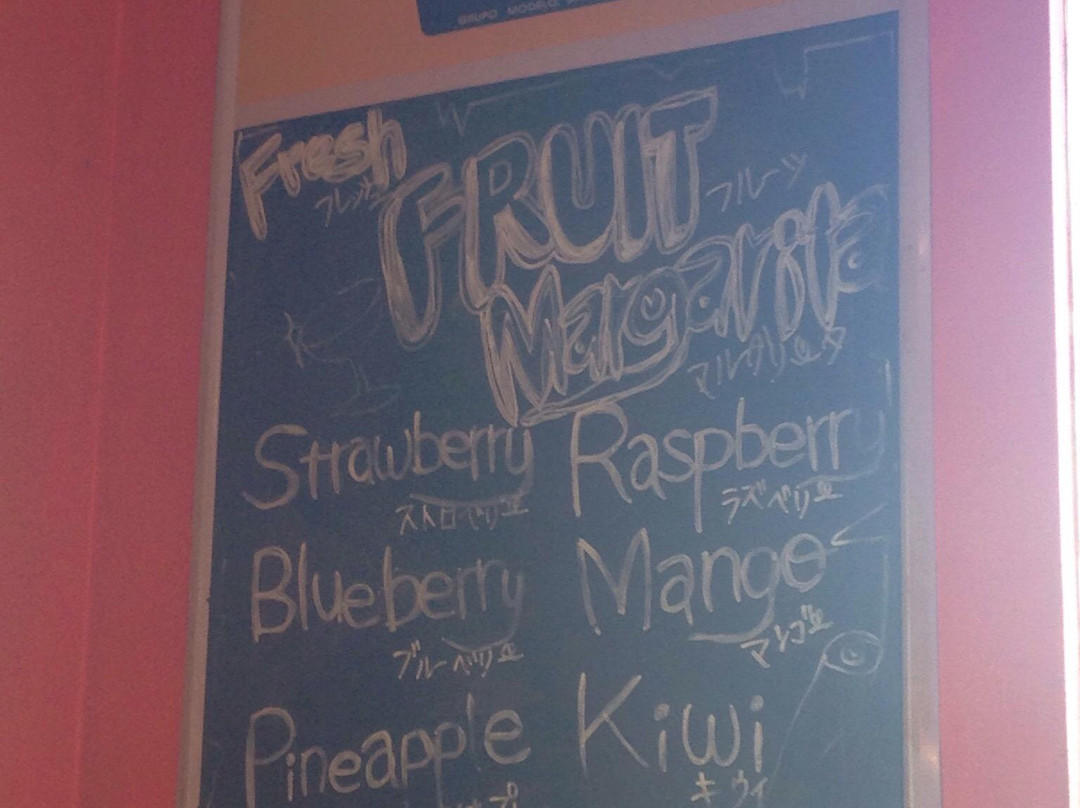 GRUPO MODELO
Fresh
フレッシュ
FRUIT
フルーツ
Margarita
マルガリータ
Strawberry Raspberry
ストロベリー ラズベリー
Blueberry Mango
ブルーベリー マンゴー
Pineapple Kiwi
キウィ